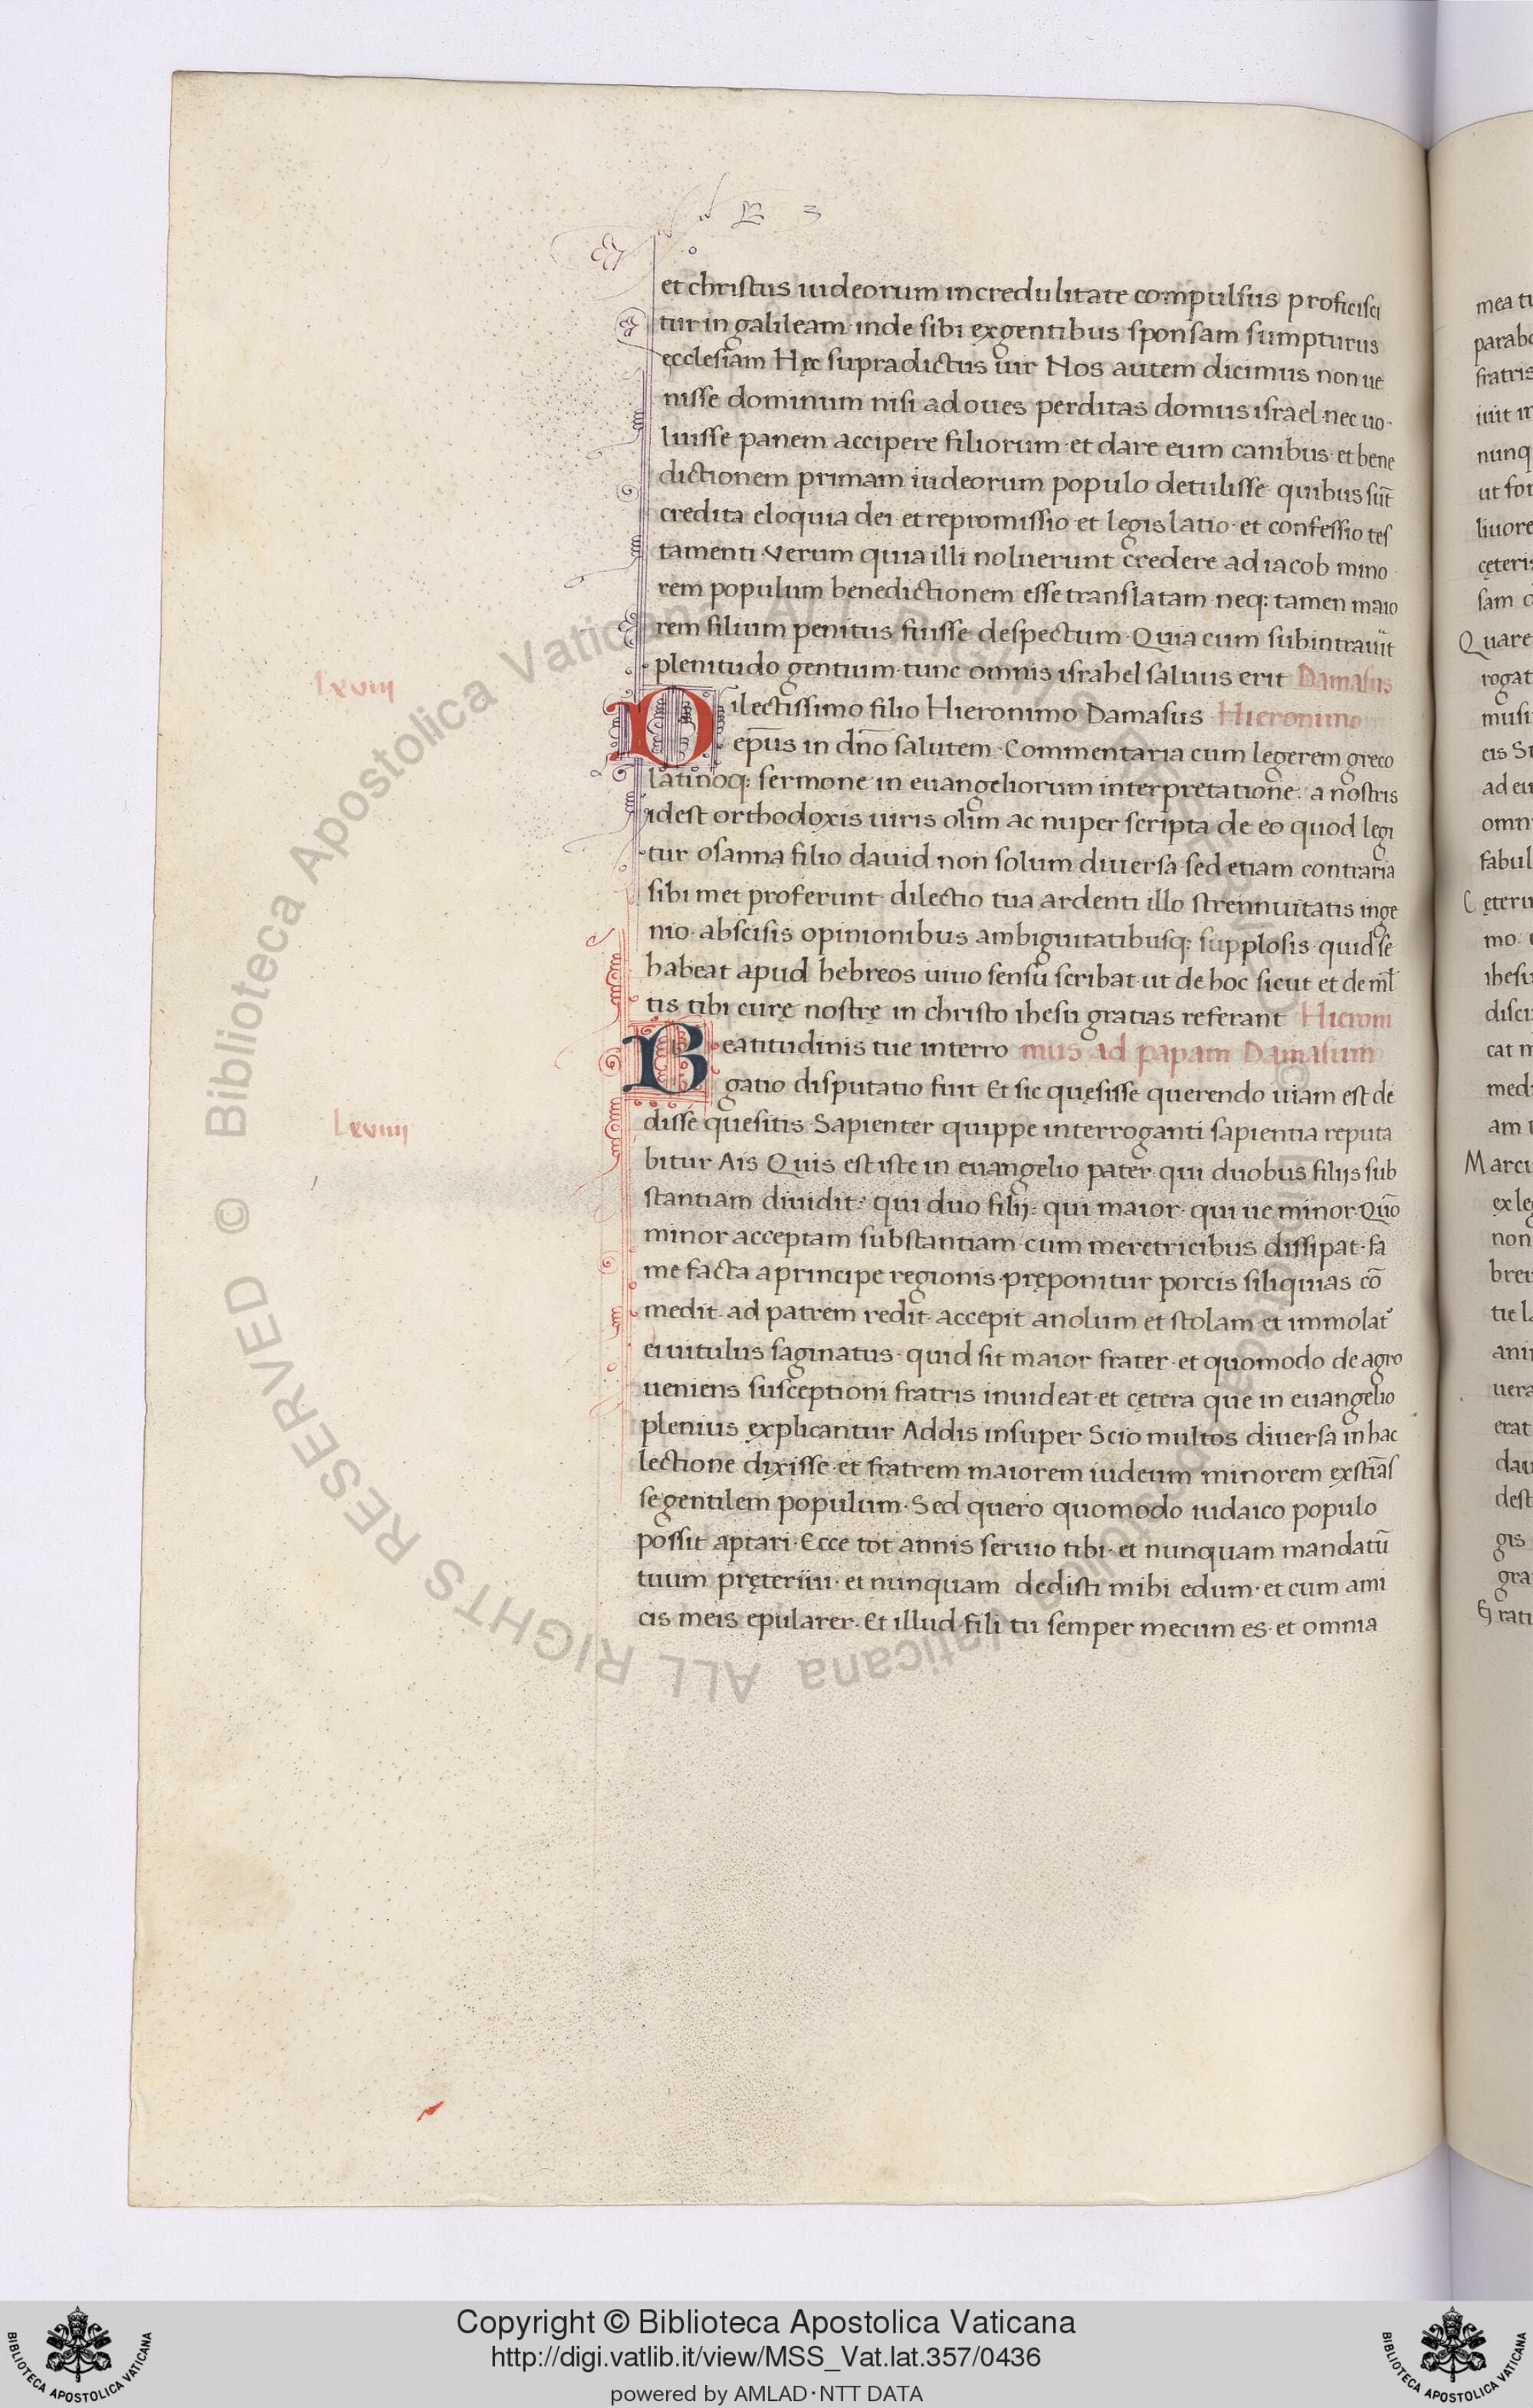 et christus iudeorum incredulitate compulsus proficisci
tur in galileam· inde sibi ex gentibus sponsam sumpturus
ecclesiam Hęc supradictus uir Nos autem dicimus non ue
nisse dominum nisi ad oues perditas domus israel· nec uo·
luisse panem accipere filiorum· et dare eum canibus· et bene
dictionem primam iudeorum populo detulisse· quibus sūt
credita eloquia dei· et repromissio· et legislatio· et confessio tes
tamenti· Verum quia illi noluerunt credere ad iacob mino
rem populum benedictionem esse translatam· neq: tamen maio
rem filium penitus fuisse despectum· Quia cum subintrauīt
plenitudo gentium· tunc omnis israhel saluus erit Damasus
Lxviij
Dilectissimo filio Hieronimo Damasus Hieronimo
ep̄us in dn̄o salutem· Commentaria cum legerem greco
latinoq: sermone in euangeliorum interpretatione: a nostris
idest orthodoxis uiris olim ac nuper scripta de eo quod legi
tur osanna filio dauid non solum diuersa· sed etiam contraria
sibi met proferunt· dilectio tua ardenti illo strennuitatis inge
nio· abscisis opinionibus ambiguitatibusq: supplosis· quid se
habeat apud hebreos uiuo sensu scribat· ut de hoc sicut et de ml̄
tis tibi curę nostrę in christo ihesu gratias referant Hieroni
Lxviiij
Beatitudinis tue interro mus ad papam Damasum
gatio disputatio fuit Et sic quęsisse querendo uiam est de
disse quesitis· Sapienter quippe interroganti sapientia reputa
bitur Ais Quis est iste in euangelio pater· qui duobus filijs sub
stantiam diuidit: qui duo filij: qui maior· qui ue minor Quō
minor acceptam substantiam· cum meretricibus dissipat· fa
me facta a principe regionis· pręponitur porcis siliquias cō
medit· ad patrem redit· accepit anolum et stolam et immolat᷒
ei uitulus saginatus· quid sit maior frater· et quomodo de agro
ueniens susceptioni fratris inuideat· et cętera que in euangelio
plenius explicantur Addis insuper Scio multos diuersa in hac
lectione dixisse· et fratrem maiorem iudeum minorem exstīas
se gentilem populum· Sed quero quomodo iudaico populo
possit aptari· Ecce tot annis seruio tibi· et nunquam mandatū
tuum pręteriui· et nunquam dedisti mihi edum· et cum ami
cis meis epularer· Et illud· fili tu semper mecum es· et omnia
Copyright © Biblioteca Apostolica Vaticana
http://digi.vatlib.it/view/MSS_Vat.lat.357/0436
powered by AMLAD·NTT DATA